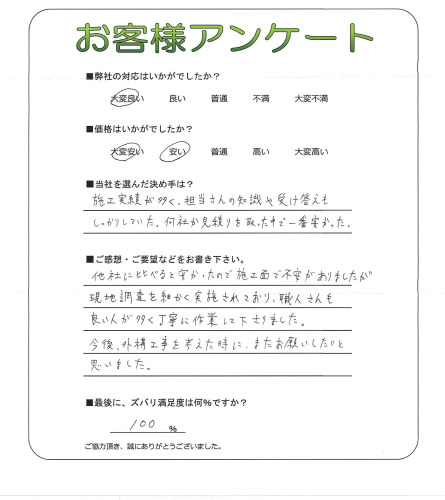 お客様アンケート
■弊社の対応はいかがでしたか?
大変良い 良い 普通 不満 大変不満
■価格はいかがでしたか?
大変安い 安い 普通 高い 大変高い
■当社を選んだ決め手は?
施工実績が多く、担当さんの知識や受け答えも
しっかりしていた。何社か見積りを取った中で一番安かった。
■ご感想・ご要望などをお書き下さい。
他社に比べると安かったので施工面で不安がありましたが
現地調査を細かく実施されており、職人さんも
良い人が多く丁寧に作業して下さりました。
今後、外構工事を考えた時に、またお願いしたいと
思いました。
■最後に、ズバリ満足度は何%ですか?
100 %
ご協力頂き、誠にありがとうございました。